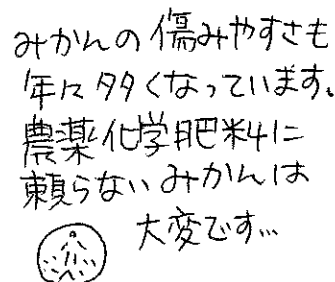 みかんの傷みやすさも
年に多くなっています。
農薬化学肥料に
頼らないみかんは
大変です…